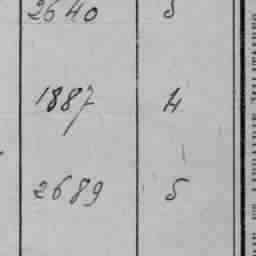 2640 5
1887 4
2689 5